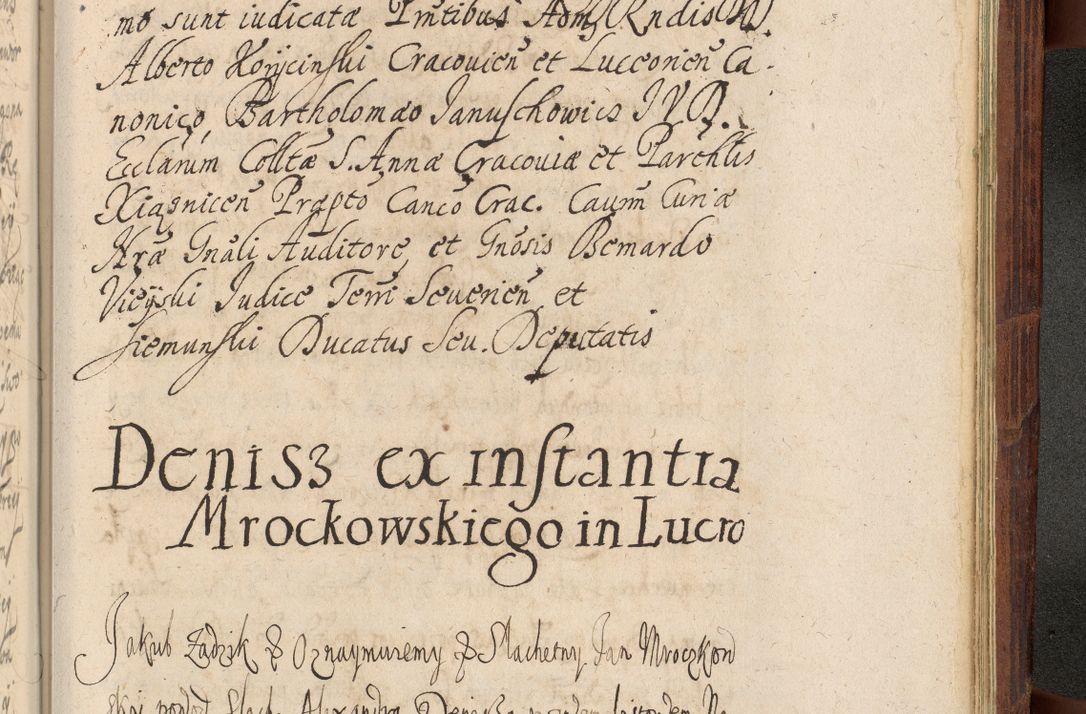 mo sunt iudicatæ Pntibus Adm Rndis DD.
Alberto Korycinski Cracovien et Lucceorien Ca-
nonico, Bartholomæo Januschowicz I V D.
Ecclarum Colltæ S. Annæ Cracoviæ et Parchlis
Xiąznicen Præpto Canco Crac. Caurm Curiæ
Nræ Gnāli Auditore, et Gnosis Bernardo
Vieyski Judice Terri Severien, et
Siemunski Ducatus Sev. Deputatis
Denisz ex instantia
Mrockowskiego in Lucro
Jakub Zadzik & Oznaymuiemy & Slachetny Jan Mroczkow
ski Slach. Alexandra Denisza